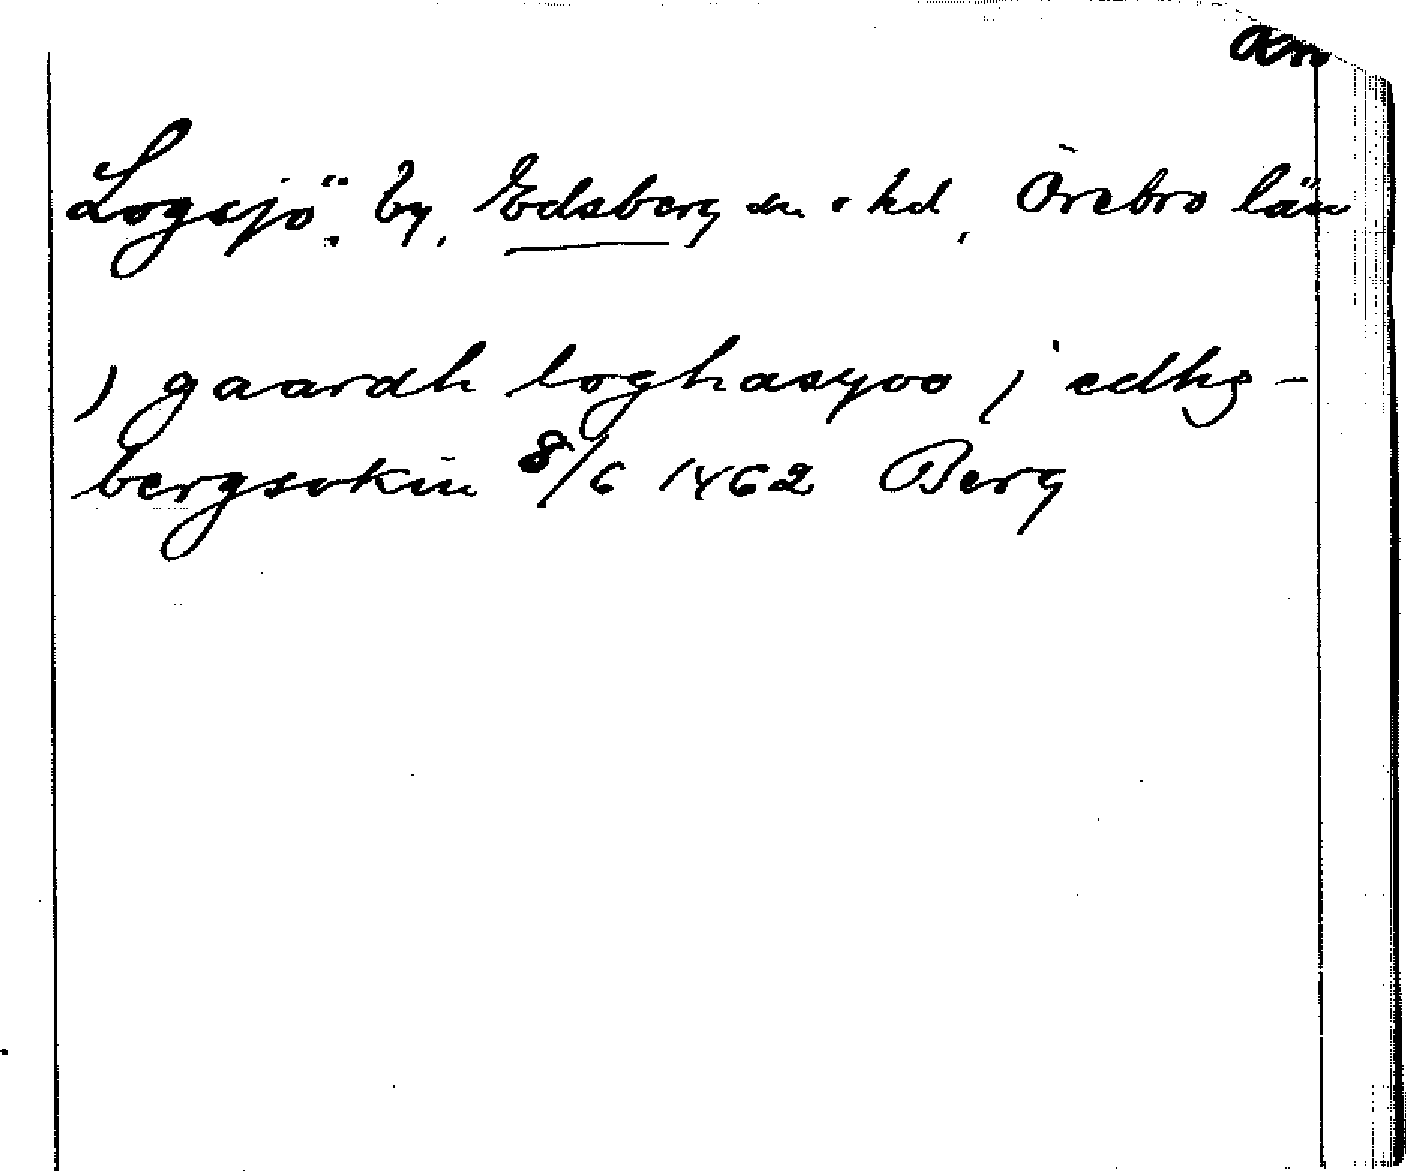 Logsjö, by, Edsberg sn o hd, Örebro län
j gaardh loghasyoo j edhs-
bergsokin 8/6 1462 Berg